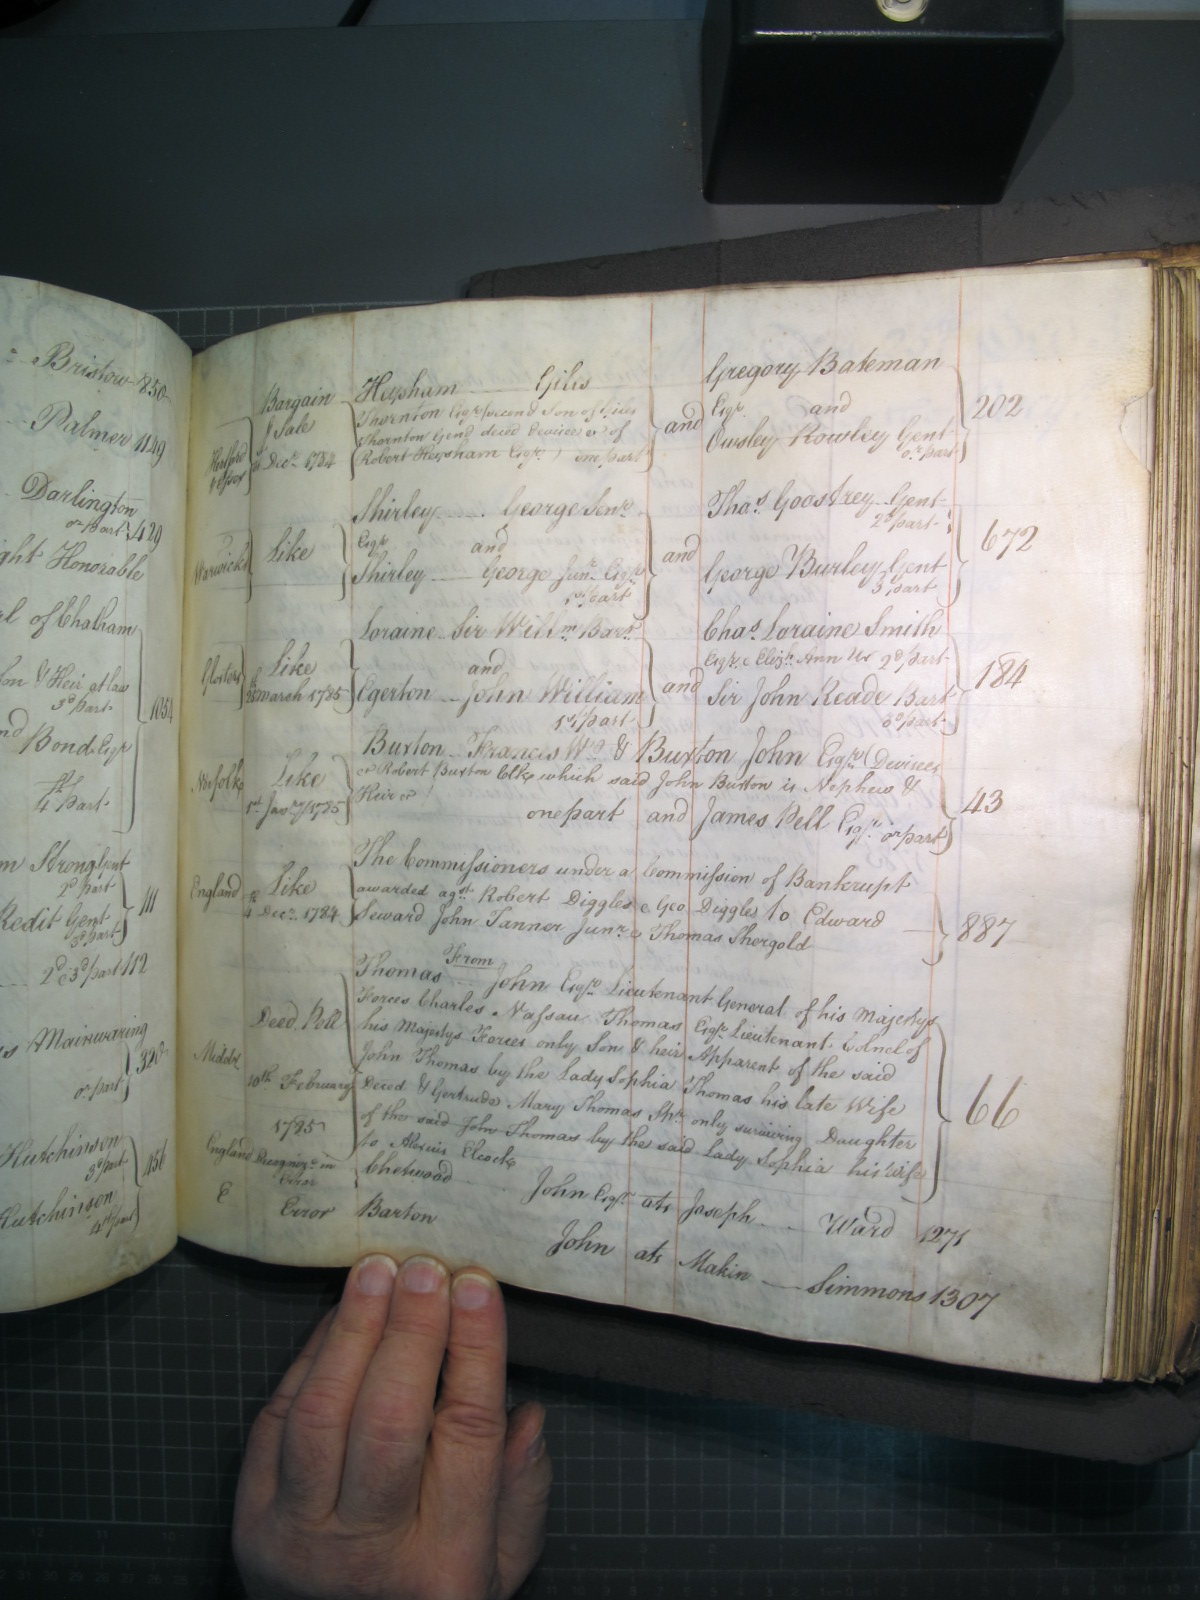 Bristow 850
Palmer 1149
Darlington
or part 429
ght Honorable
l of Chatham
on & Heir at law
3d part
1054
nd Bond Esqr
4th part
m Strong Gent
2d part
Redit Gent
3d part
111
2d & 3d part 112
Mainwaring
or part
320
Hutchinson
3d part
456
Hutchinson
4th part
Bargain & Sale
Hertford
Decr. 1784
Heysham Giles
Thornton Esqr second Son of Giles
Thornton Gent deced Devisee &c of
Robert Heysham Esqr.) one part
and
Gregory Bateman
Esqr. and
Owsley Rowley Gent
or part
202
Warwick
Like
Shirley George Senr
Esqr and
Shirley George Junr. Esqr
1st part
and
Thas. Goostrey Gent
2d part
George Burley Gent
3d part
672
Glosters
Like
March 1785
Loraine Sir Willm Bart
and
Egerton John William
1st part
and
Chas. Loraine Smith
Esqr. & Elizth. Ann Ux 2d part
Sir John Reade Bart
3d part
184
Norfolk
Like
1st Janry 1785
Buxton Francis Wo. & Buxton John Esqr (Devisees
&c Robert Buxton Clk which said John Buxton is Nephew &
Heir &c
one part and James Pell Esqr. or part
43
England
Like
4 Decr. 1784
The Commissioners under a Commission of Bankrupt
awarded agst. Robert Diggles & Geo Diggles to Edward
Seward John Tanner Junr & Thomas Shergold
887
From
Middx
Deed Poll
10th February
1785
Thomas John Esqr Lieutenant General of his Majestys
Forces Charles Nassau Thomas Esqr Lieutenant Colnel of
his Majestys Forces only Son & heir Apparent of the said
John Thomas by the Lady Sophia Thomas his late Wife
Deced & Gertrude Mary Thomas Spr only surviving Daughter
of the said John Thomas by the said Lady Sophia his Wife
to Alexius Elcock
66
England
in
Error
Chetwood John Esqr ats Joseph Ward 1271
E
Error
Barton John ats Makin Simmons 1307